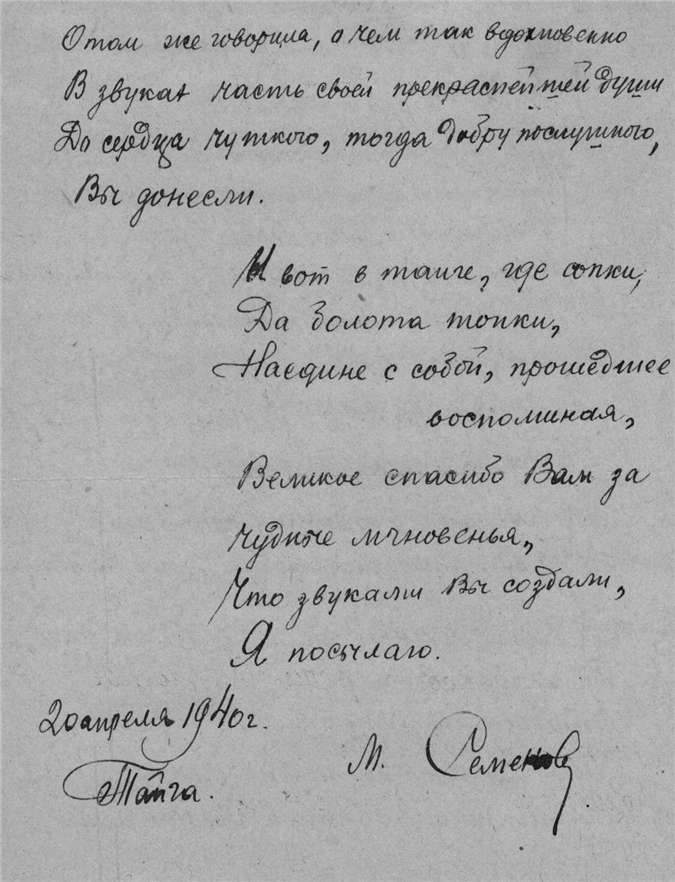 О том же говорила, о чем так вдохновенно
В звуках часть своей прекраснейшей души
До сердца чуткого, тогда добру послушного,
Вы донесли.
И вот в тайге, где сопки,
Да болота топки,
Наедине с собой, прошедшее
воспоминая,
Великое спасибо Вам за
чудные мгновенья,
Что звуками Вы создали,
Я посылаю.
20 апреля 1940 г.
Тайга.
М. Семенов